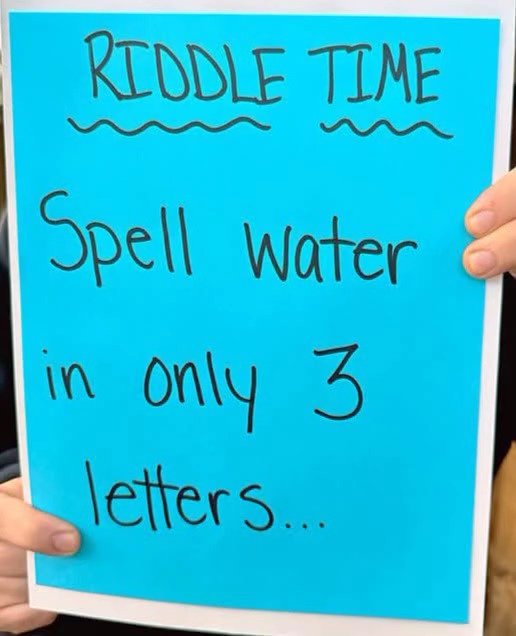 RIDDLE TIME
Spell water
in only 3
letters...